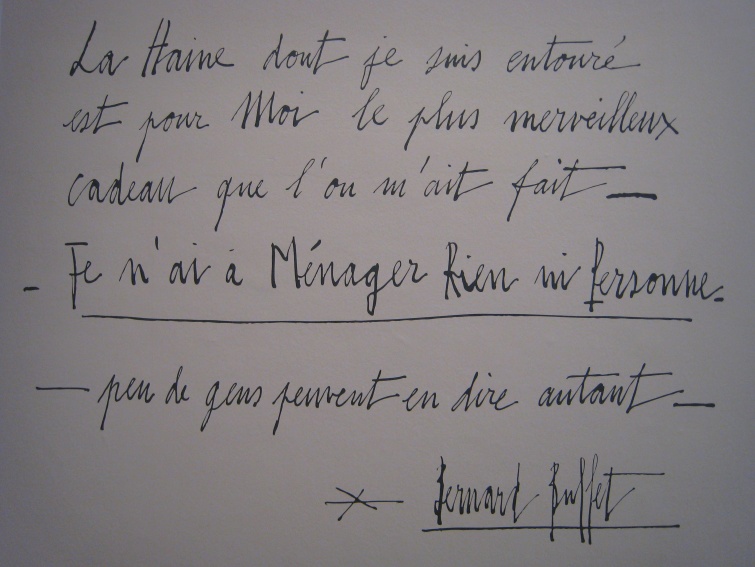 La Haine dont je suis entouré
est pour Moi le plus merveilleux
cadeau que l'on m'ait fait —
- Je n'ai à Ménager Rien ni Personne -
— peu de gens peuvent en dire autant —
Bernard Buffet